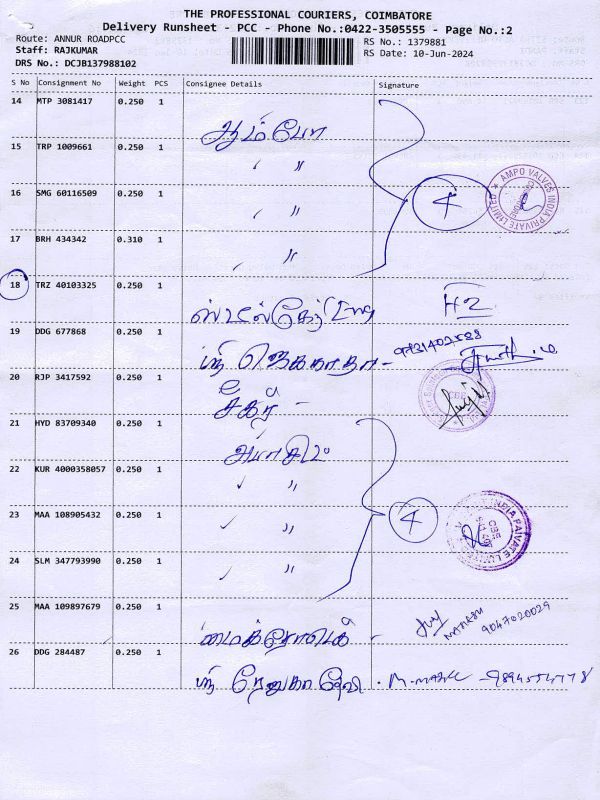 THE PROFESSIONAL COURIERS, COIMBATORE
Delivery Runsheet - PCC - Phone No.:0422-3505555 - Page No.:2
Route: ANNUR ROADPCC
RS No.: 1379881
Staff: RAJKUMAR
RS Date: 10-Jun-2024
DRS No.: DCJB137988102
S No Consignment No Weight PCS Consignee Details Signature
14 MTP 3081417 0.250 1
ஆம்போ
15 TRP 1009661 0.250 1
〃
16 SMG 60116509 0.250 1
〃
4
AMPO VALVES INDIA PRIVATE LIMITED
17 BRH 434342 0.310 1
〃
18 TRZ 40103325 0.250 1
HZ
19 DDG 677868 0.250 1
ஸ்ரீ ஜெகநாதா -
20 RJP 3417592 0.250 1
CBE
21 HYD 83709340 0.250 1
22 KUR 4000358057 0.250 1
〃
23 MAA 108905432 0.250 1
〃
4
INDIA PRIVATE LIMITED
CBE
24 SLM 347793990 0.250 1
〃
25 MAA 109897679 0.250 1
9047020029
26 DDG 284487 0.250 1
ஸ்ரீ ரேணுகா தேவி